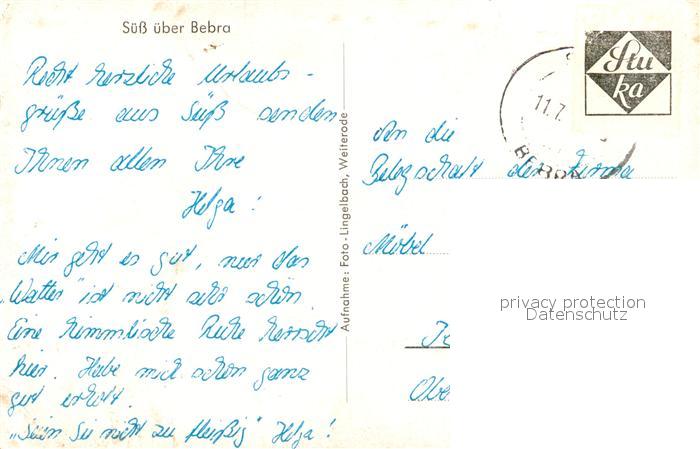 Süß über Bebra
Recht herzliche Urlaubs-
grüße aus Süß senden
Ihnen allen Ihre
Helga!
Mir geht es gut, nur das
"Wetter" ist nicht sehr schön.
Eine himmlische Ruhe herrscht
hier. Habe mich schon ganz
gut erholt.
„Seien Sie nicht zu fleißig" Helga!
Aufnahme: Foto-Lingelbach, Weiterode
Stu
ka
11.7.
BEBRA
An die
Belegschaft der Firma
Möbel
Obe
privacy protection
Datenschutz